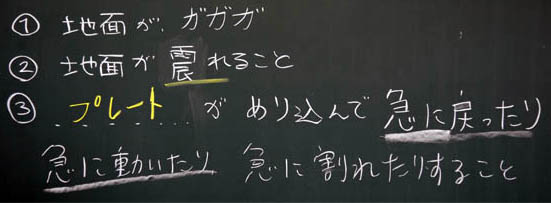 ① 地面が、ガガガ
② 地面が震れること
③ プレートがめり込んで急に戻ったり
急に動いたり 急に割れたりすること